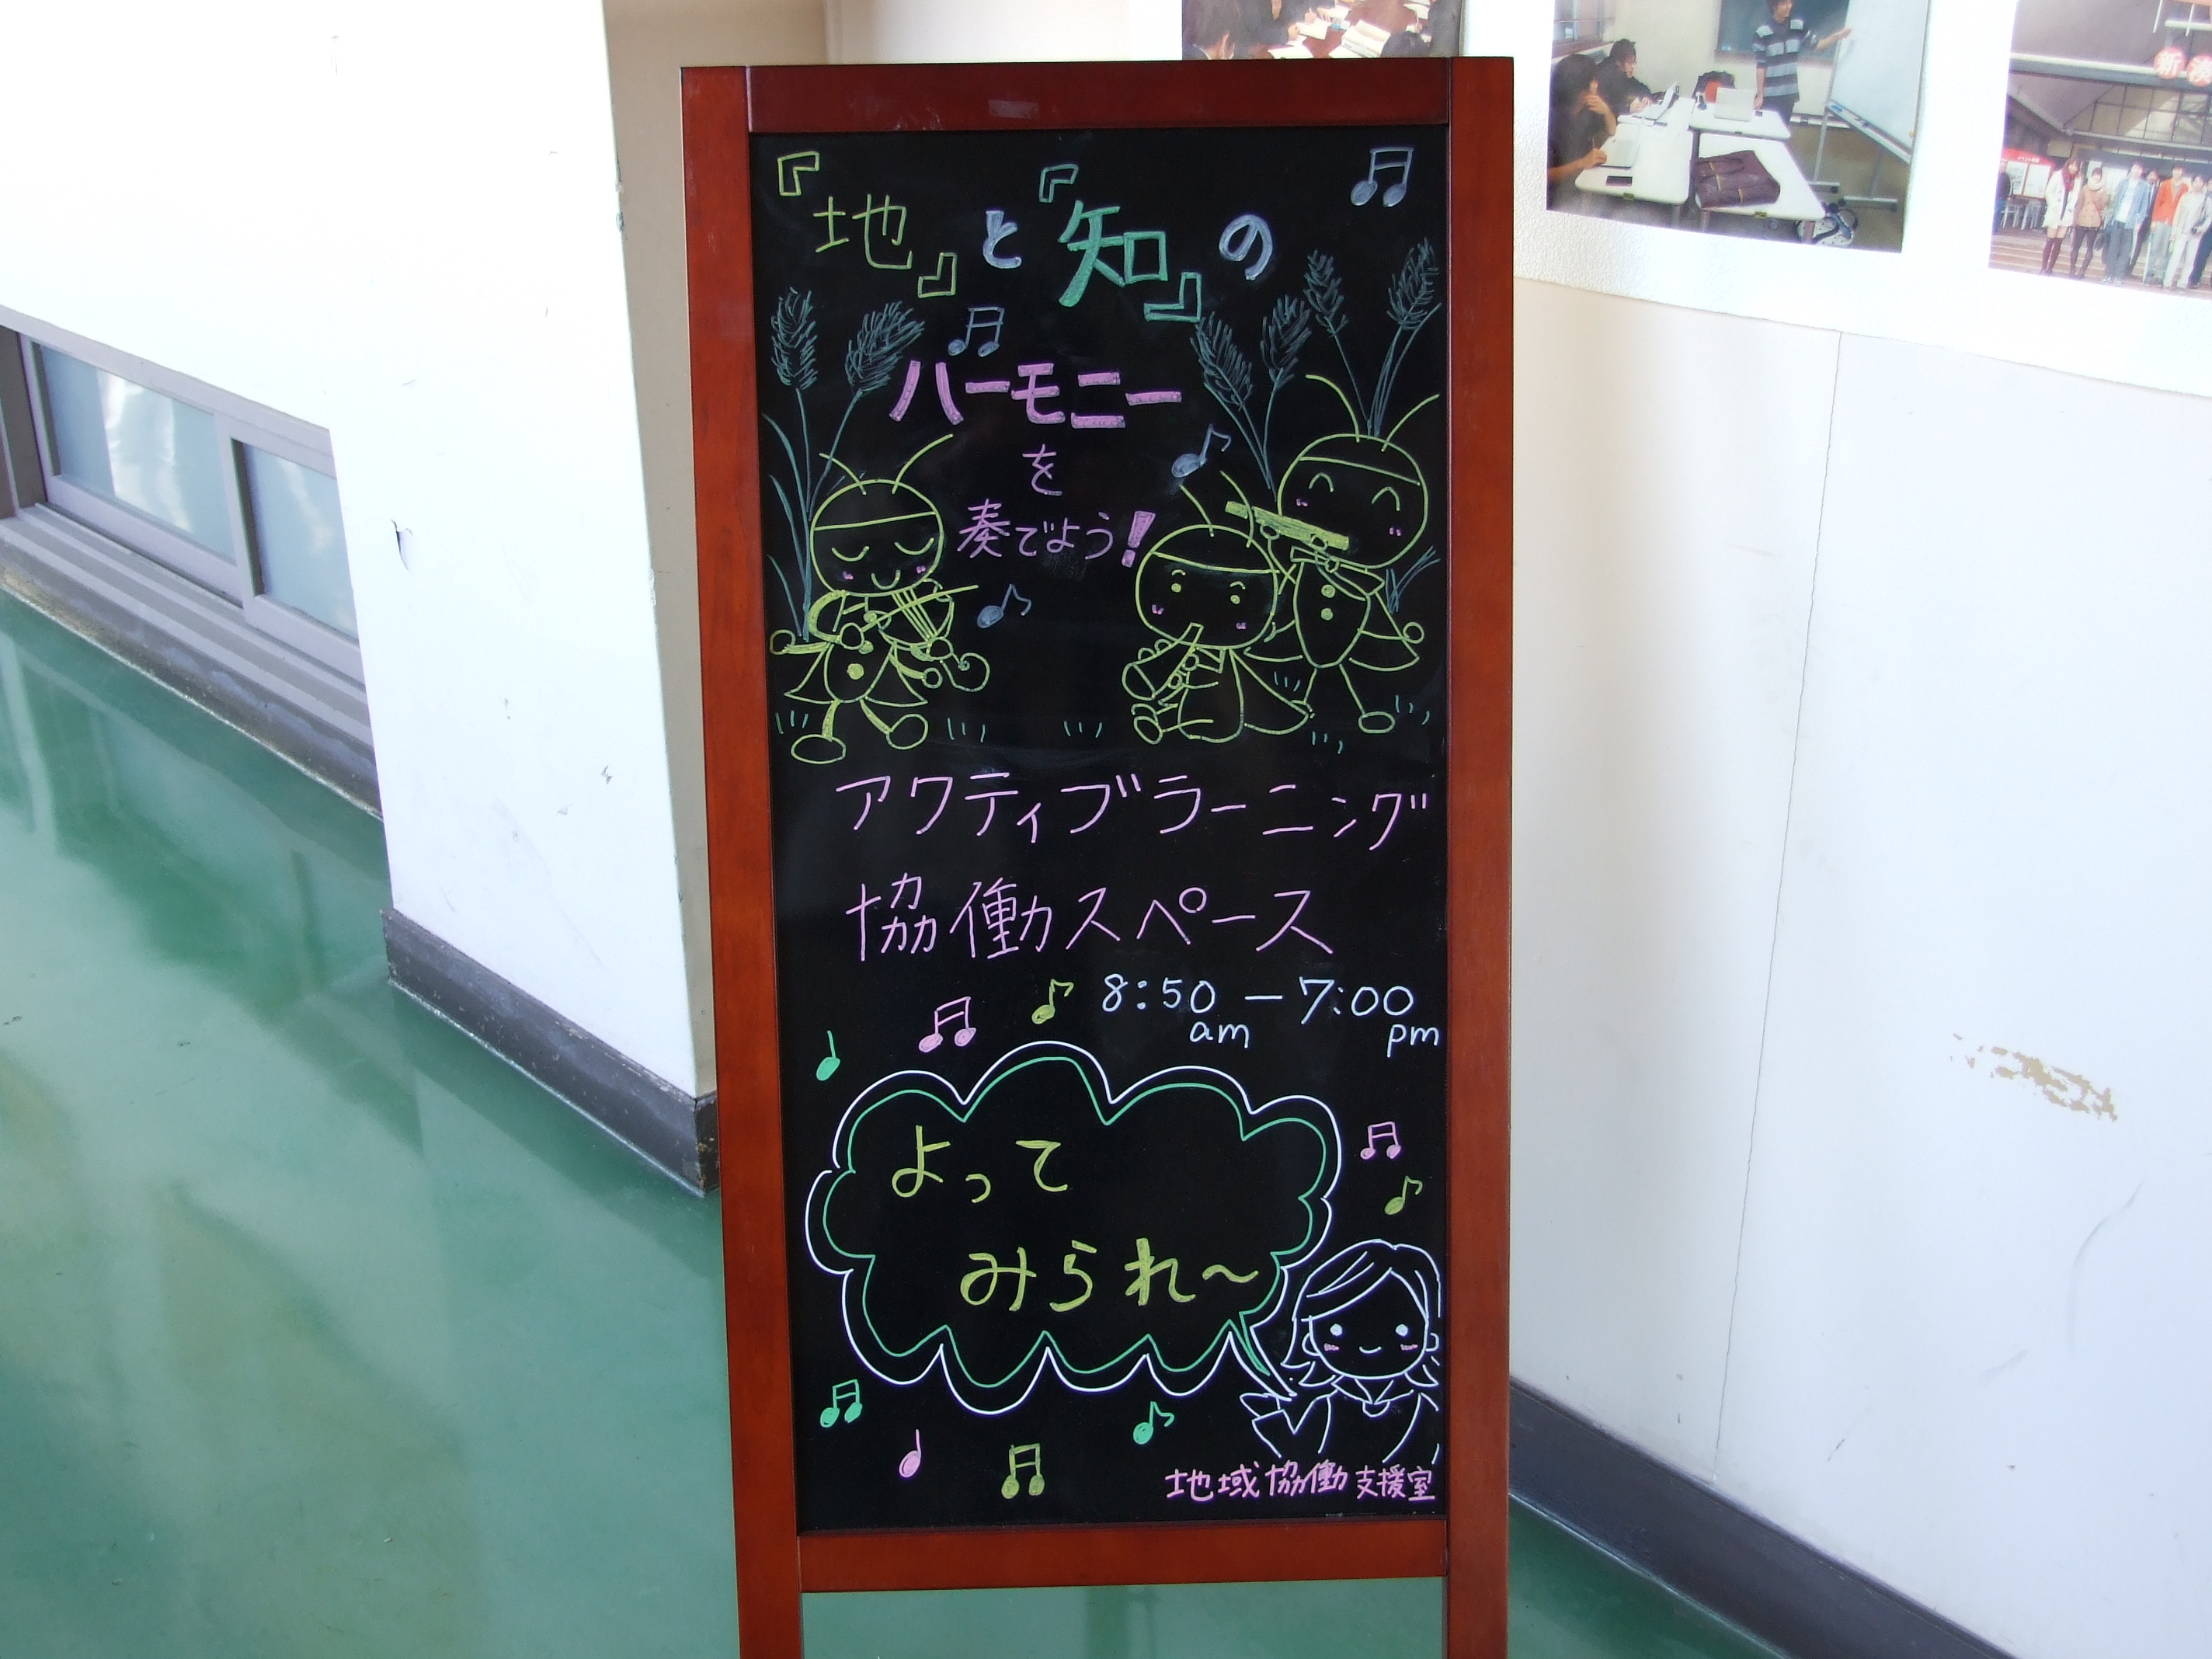 『地』と『知』の
ハーモニー
を
奏でよう!
アクティブラーニング
協働スペース
8:50 am － 7:00 pm
よって
みられ～
地域協働支援室
新湊